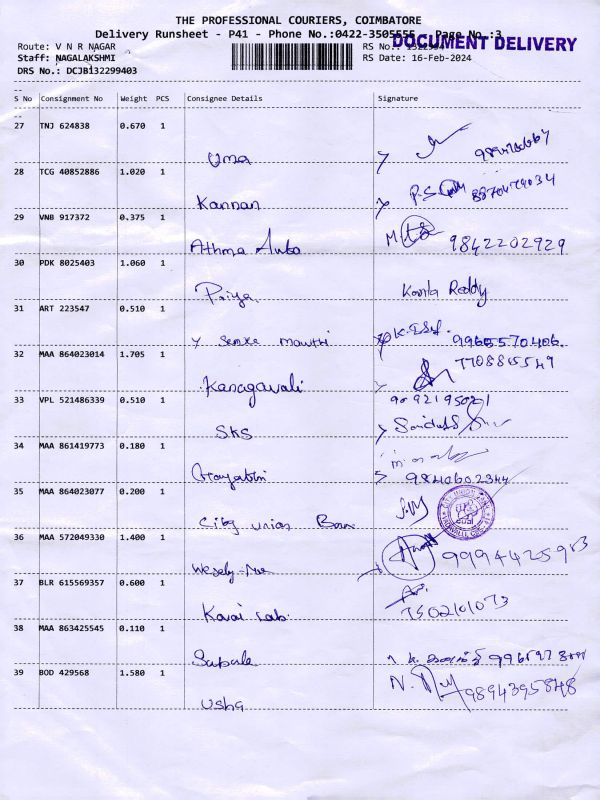 THE PROFESSIONAL COURIERS, COIMBATORE
Delivery Runsheet - P41 - Phone No.:0422-3505555 Page No.:3
DOCUMENT DELIVERY
Route: V N R NAGAR RS No.:
Staff: NAGALAKSHMI RS Date: 16-Feb-2024
DRS No.: DCJB132299403
S No Consignment No Weight PCS Consignee Details Signature
27 TNJ 624838 0.670 1
Uma
28 TCG 40852886 1.020 1
Kannan 8870479034
29 VNB 917372 0.375 1
Athma Auto 9842202929
30 PDK 8025403 1.060 1
Priya Kavita Reddy
31 ART 223547 0.510 1
9965570406.
32 MAA 864023014 1.705 1 7708815549
Kanagavali
33 VPL 521486339 0.510 1 9092195021
SKS
34 MAA 861419773 0.180 1
Gayathri 9840602344
35 MAA 864023077 0.200 1
City union Bank
36 MAA 572049330 1.400 1
37 BLR 615569357 0.600 1
Kovai Lab. 7502101073
38 MAA 863425545 0.110 1
39 BOD 429568 1.580 1
Usha 9894395848